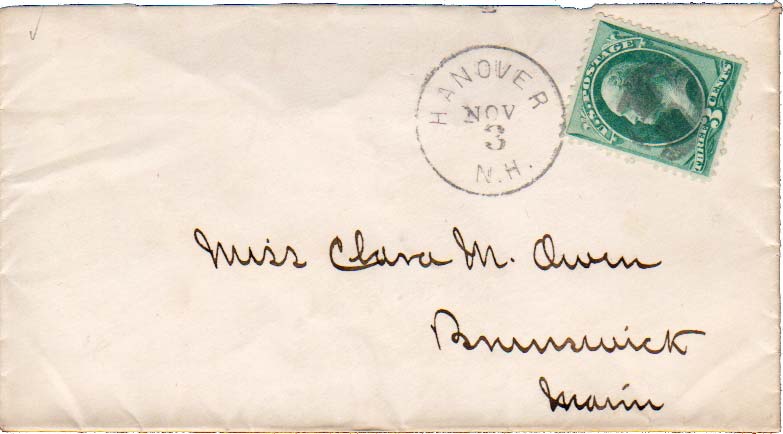 HANOVER
NOV
3
N.H.
U.S. POSTAGE
THREE 3 CENTS
Miss Clara M. Owen
Brunswick
Main